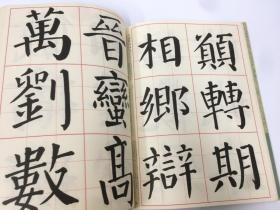 顛轉期
相鄉辯
晉蠻髙
萬劉數